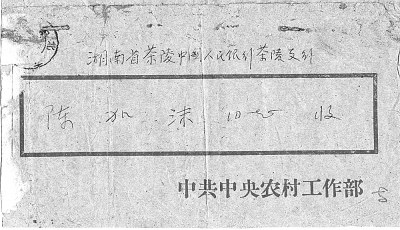 湖南省茶陵中国人民银行茶陵支行
陈 加 沫 同志 收
中共中央农村工作部